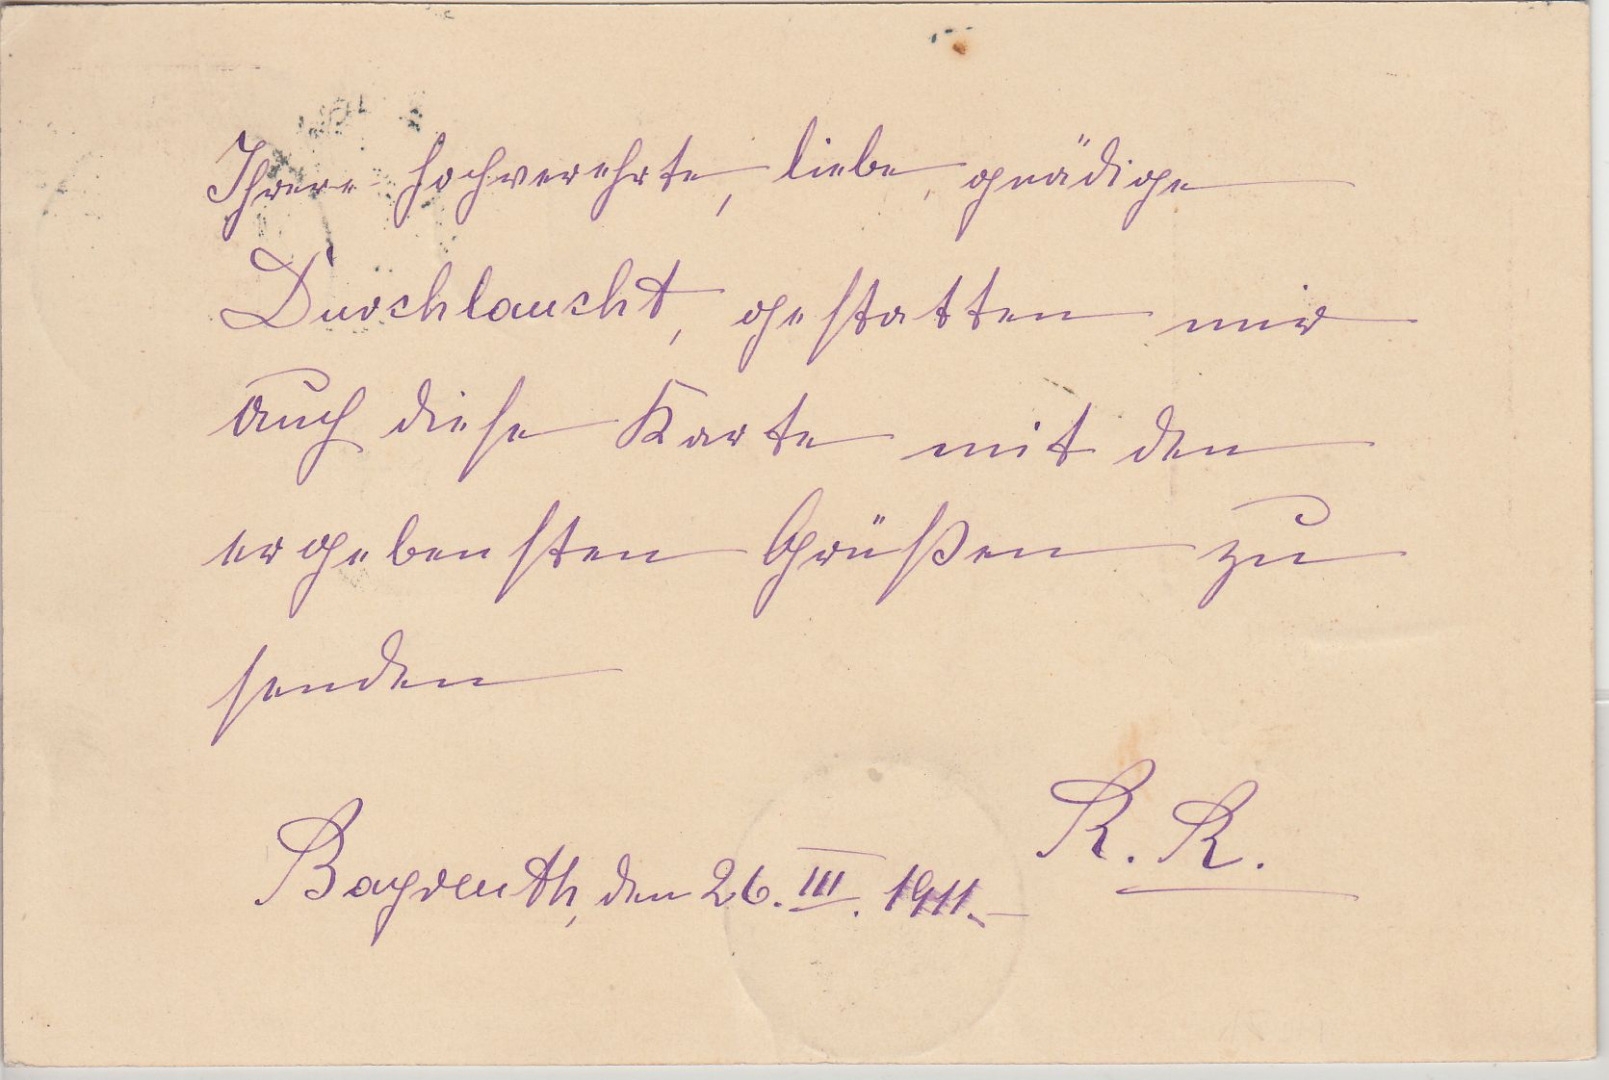 Theuere hochverehrte, liebe, gnädige
Durchlaucht, gestatten mir
auch diese Karte mit den
ergebensten Grüßen zu
senden
R. R.
Bayreuth, den 26. III. 1911.